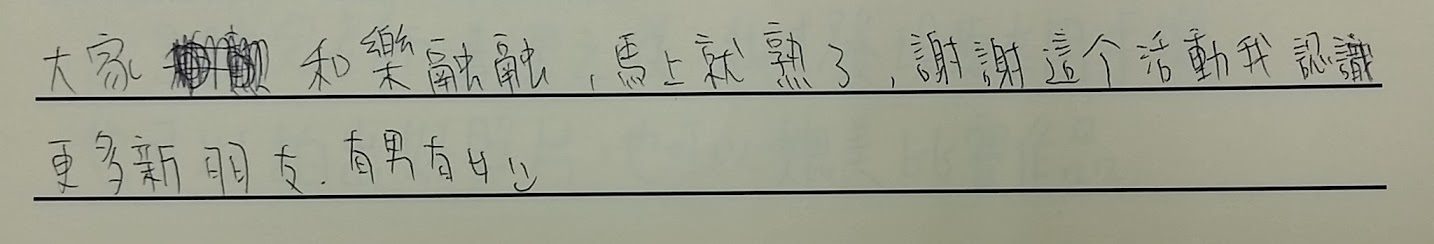 大家和樂融融，馬上就熟了，謝謝這个活動我認識
更多新朋友．有男有女